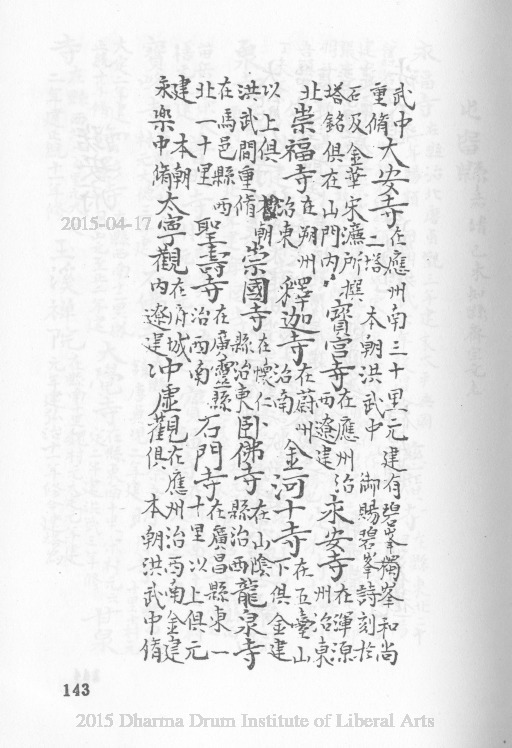 武中重脩大安寺在應州南三十里元建有碧峯獨峯和尚二塔 本朝洪武中 御賜碧峯詩刻於
石及金華宋濂所撰塔銘俱在山門內寶宮寺在應州治西遼建永安寺在渾源州治東
北崇福寺在朔州治東釋迦寺在蔚州治南金河十寺在五臺山下俱金建
以上俱 本朝洪武間重脩崇國寺在懷仁縣治東臥佛寺在山陰縣治西龍泉寺
在馬邑縣西北一十里聖壽寺在廣靈縣治西南石門寺在廣昌縣東一十里 以上俱元
建 本朝永樂中脩大寧觀在府城內遼建冲虛觀在應州治西南金建俱 本朝洪武中脩
2015-04-17
143
2015 Dharma Drum Institute of Liberal Arts